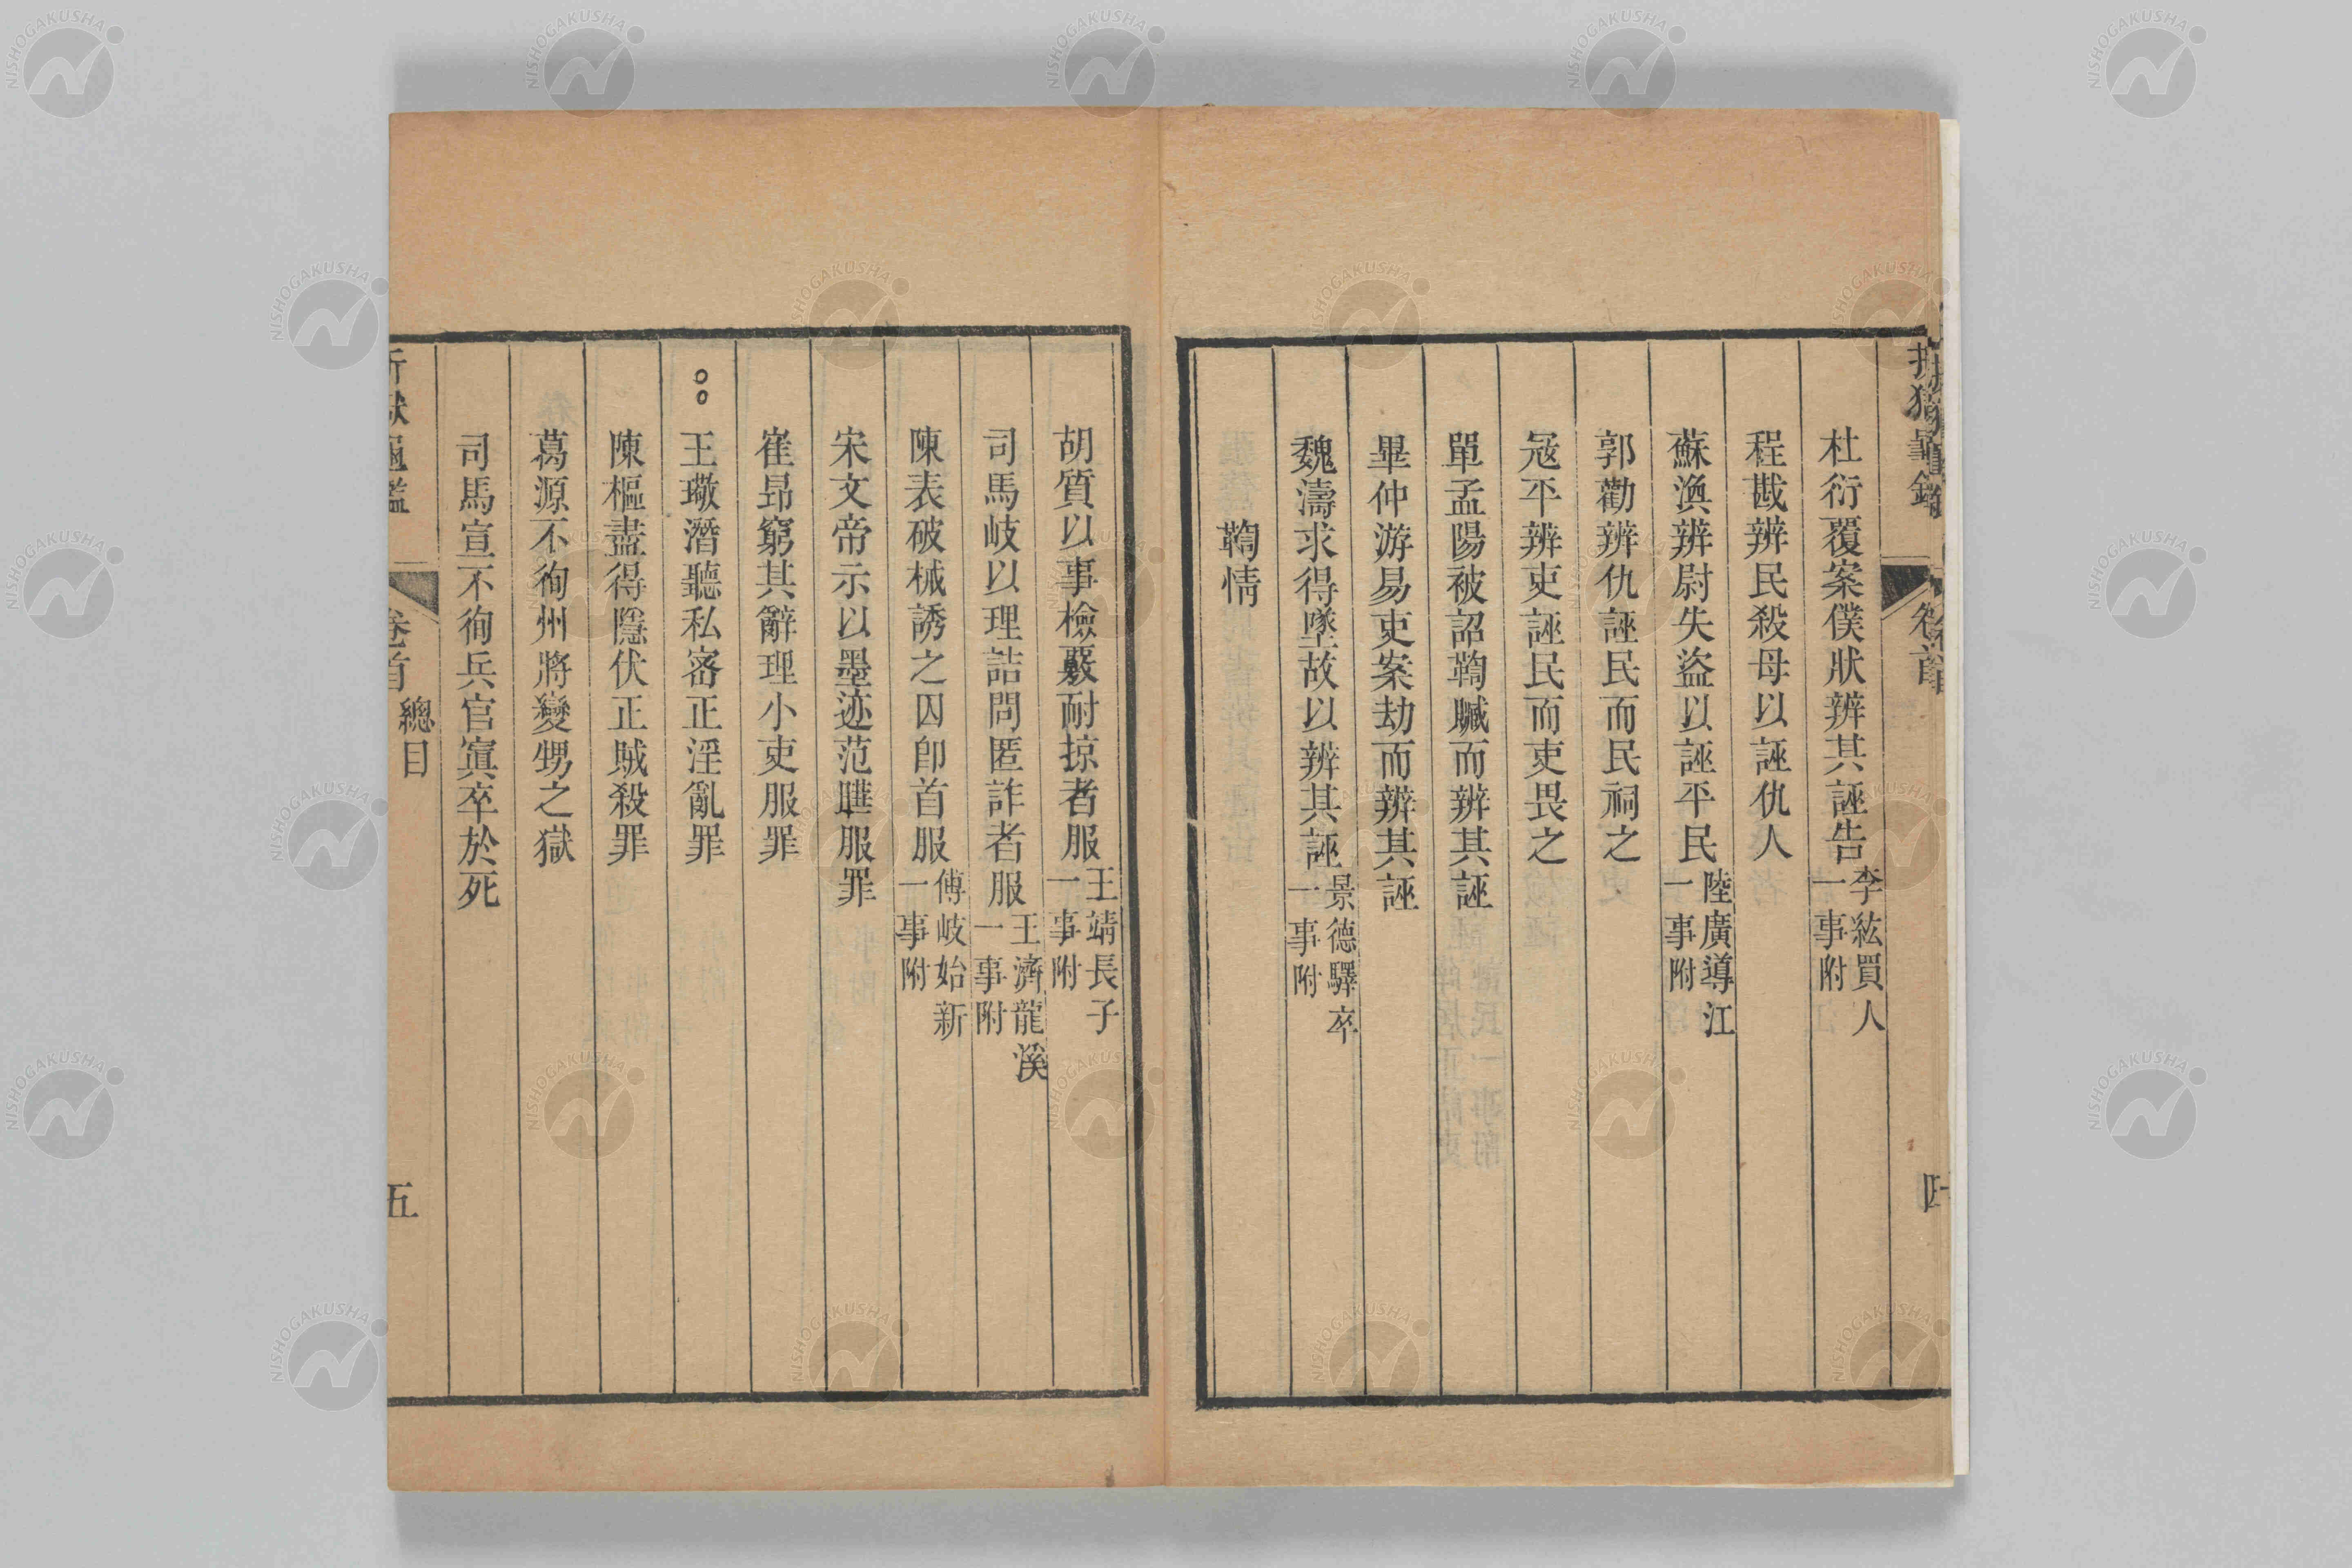 杜衍覆案僕狀辨其誣告李紘買人一事附
程戡辨民殺母以誣仇人
蘇渙辨尉失盜以誣平民陸廣導江一事附
郭勸辨仇誣民而民祠之
冦平辨吏誣民而吏畏之
單孟陽被詔鞫贓而辨其誣
畢仲游易吏案劫而辨其誣
魏濤求得墜故以辨其誣景德驛卒一事附
鞫情
胡質以事檢覈耐掠者服王靖長子一事附
司馬岐以理詰問匿詐者服王濟龍溪一事附
陳表破械誘之囚卽首服傅岐始新一事附
宋文帝示以墨迹范曄服罪
崔昻窮其辭理小吏服罪
王璥潛聽私審正淫亂罪
陳樞盡得隱伏正賊殺罪
葛源不徇州將變甥之獄
司馬宣不徇兵官寘卒於死
卷首 總目
五
NISHOGAKUSHA